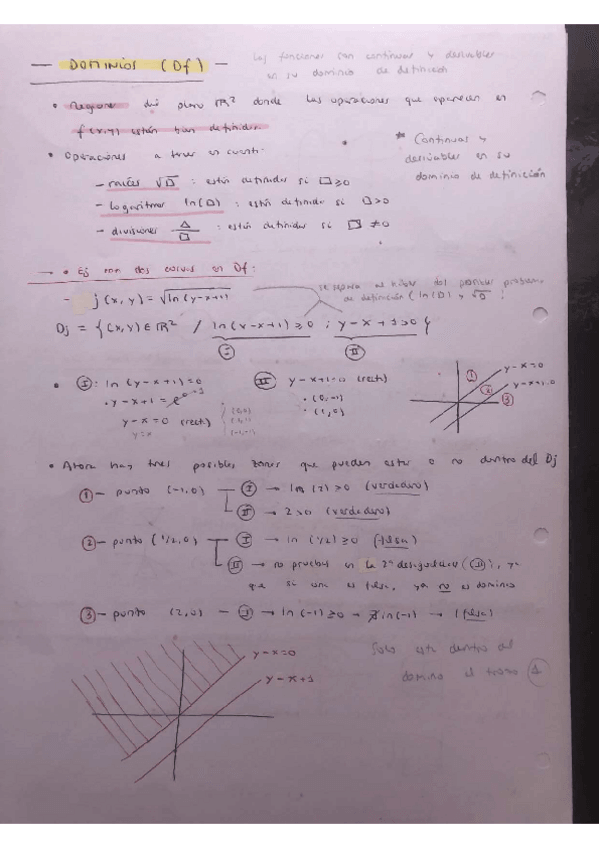 — DOMINIOS (Df) —
Las funciones son continuas y derivables
en su dominio de definición
• Regiones del plano ℝ² donde las operaciones que aparecen en
f(x,y) están bien definidas.
• Operaciones a tener en cuenta:
* Continuas y
derivables en su
dominio de definición
– raíces √□ : están definidas si □≥0
– logaritmos ln(□) : están definidos si □>0
– divisiones △/□ : están definidas si □≠0
→ • Ej con dos curvas en Df:
– j(x,y) = √ln(y-x+1)
se separa al haber dos posibles problemas
de definición (ln(□) y √□)
Dj = {(x,y)∈ℝ² / ln(y-x+1)≥0 ; y-x+1>0}
Ⓘ Ⓘ Ⓘ
• Ⓘ: ln(y-x+1)=0
• y-x+1 = e⁰→1
y-x=0 (recta)
y=x
(0,0)
(1,1)
(-1,-1)
Ⅱ y-x+1=0 (recta)
• (0,-1)
• (1,0)
① y-x=0
② y-x+1=0
③
• Ahora hay tres posibles zonas que pueden estar o no dentro del Dj
① – punto (-1,0) — Ⓘ → ln(2)>0 (verdadero)
Ⅱ → 2>0 (verdadero)
② – punto (1/2,0) — Ⓘ → ln(1/2)≥0 (falsa)
Ⅱ → no pruebas en la 2ª desigualdad (Ⅱ), ya
que si una es falsa, ya no es dominio
③ – punto (2,0) – Ⓘ → ln(-1)≥0 → ∄ ln(-1) → (falsa)
y-x=0
y-x+1
Solo está dentro del
dominio el trozo ①